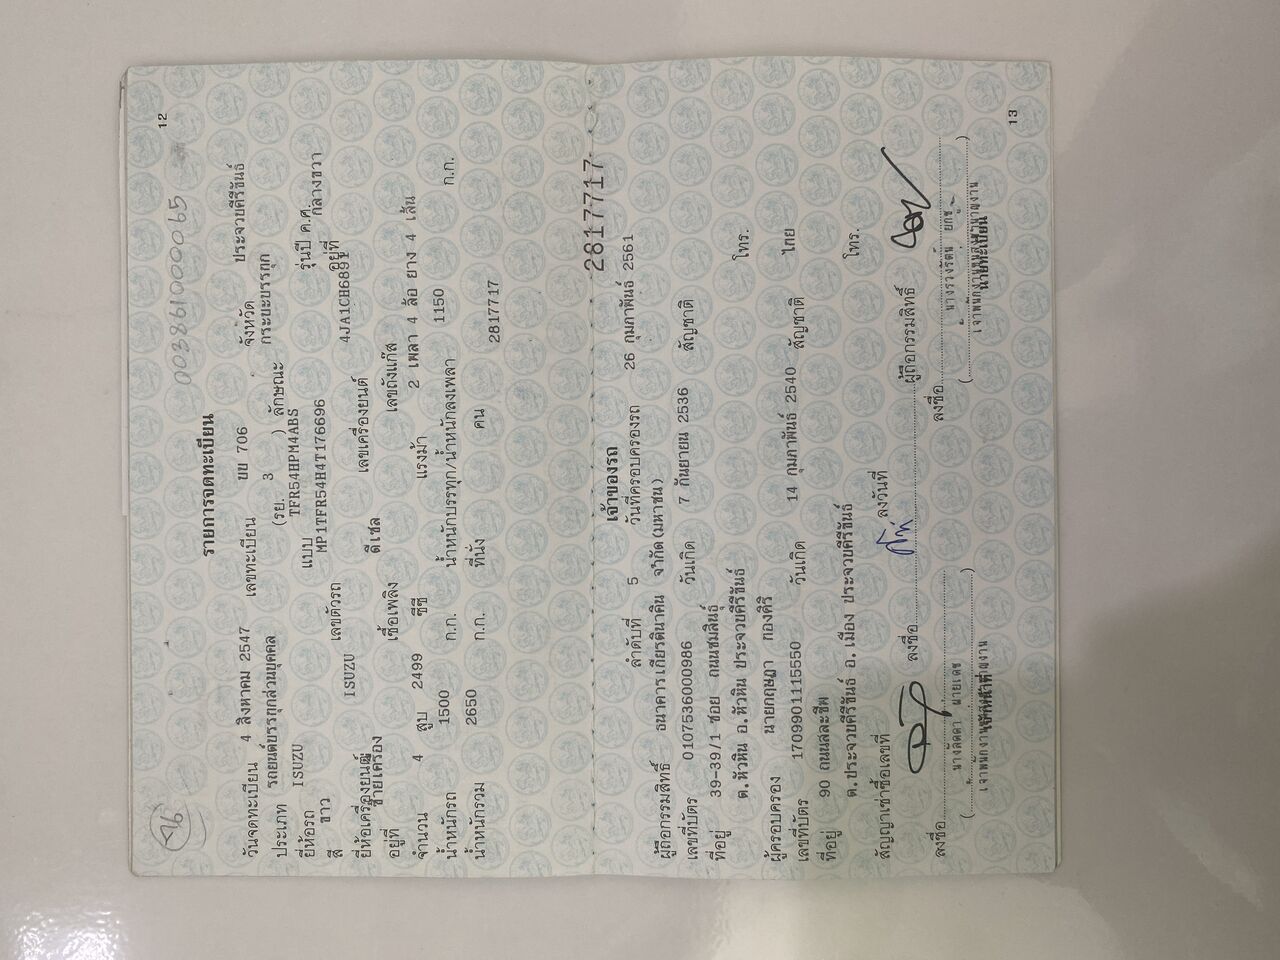 12
46
003861000065
รายการจดทะเบียน
วันจดทะเบียน 4 สิงหาคม 2547 เลขทะเบียน บบ 706 จังหวัด ประจวบคีรีขันธ์
ประเภท รถยนต์บรรทุกส่วนบุคคล (รย. 3 ) ลักษณะ กระบะบรรทุก
ยี่ห้อรถ ISUZU แบบ TFR54HPM4ABS รุ่นปี ค.ศ.
สี ขาว เลขตัวรถ MP1TFR54H4T176696 อยู่ที่ กลางขวา
ยี่ห้อเครื่องยนต์ ISUZU เลขเครื่องยนต์ 4JA1CH6891
อยู่ที่ ซ้ายเครื่อง เชื้อเพลิง ดีเซล เลขถังแก๊ส
จำนวน 4 สูบ 2499 ซีซี แรงม้า 2 เพลา 4 ล้อ ยาง 4 เส้น
น้ำหนักรถ 1500 ก.ก. น้ำหนักบรรทุก/น้ำหนักลงเพลา 1150 ก.ก.
น้ำหนักรวม 2650 ก.ก. ที่นั่ง คน 2817717
2817717
เจ้าของรถ
ลำดับที่ 5 วันที่ครอบครองรถ 26 กุมภาพันธ์ 2561
ผู้ถือกรรมสิทธิ์ ธนาคารเกียรตินาคิน จำกัด(มหาชน)
เลขที่บัตร 0107536000986 วันเกิด 7 กันยายน 2536 สัญชาติ
ที่อยู่ 39-39/1 ซอย ถนนชมสินธุ์
ต.หัวหิน อ.หัวหิน ประจวบคีรีขันธ์ โทร.
ผู้ครอบครอง นายกฤษฎา
เลขที่บัตร 1709901115550 วันเกิด 14 กุมภาพันธ์ 2540 สัญชาติ ไทย
ที่อยู่ 90 ถนนสละชีพ
ต.ประจวบคีรีขันธ์ อ.เมือง ประจวบคีรีขันธ์ โทร.
สัญญาเช่าซื้อเลขที่ ลงวันที่
ลงชื่อ ผู้ถือกรรมสิทธิ์
ลงชื่อ ลงชื่อ
13